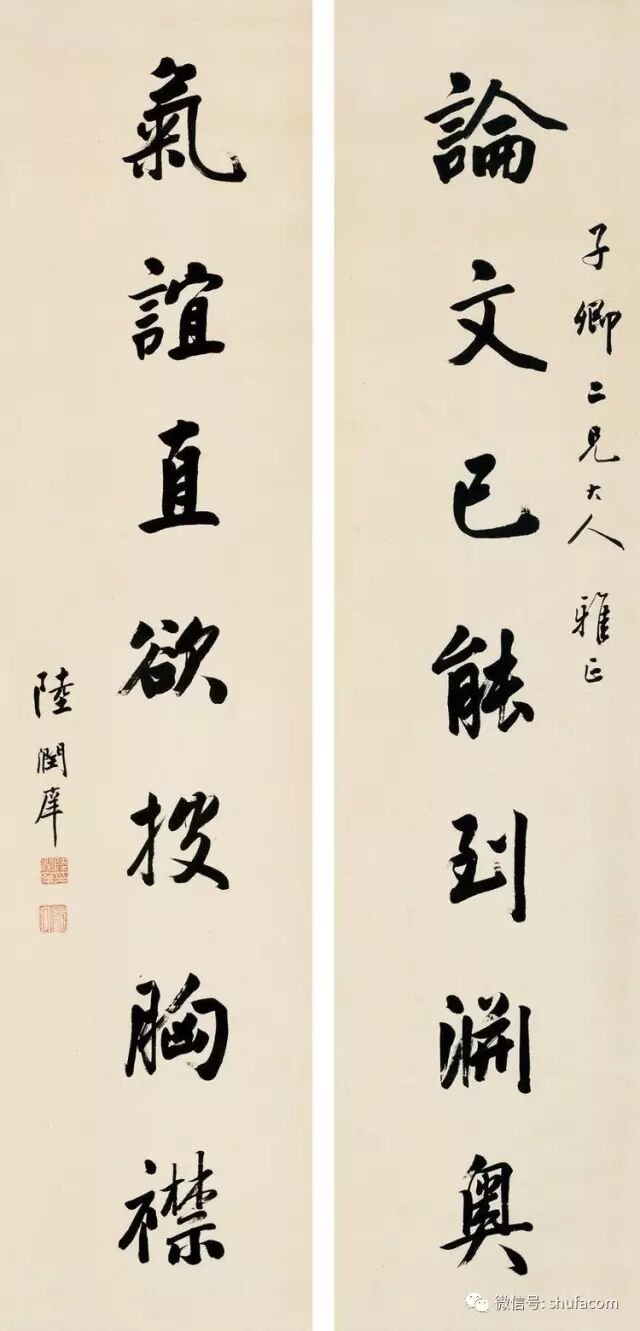 子卿二兄大人雅正
論文已能到淵奧
氣誼直欲披胸襟
陸潤庠
微信号: shufacom